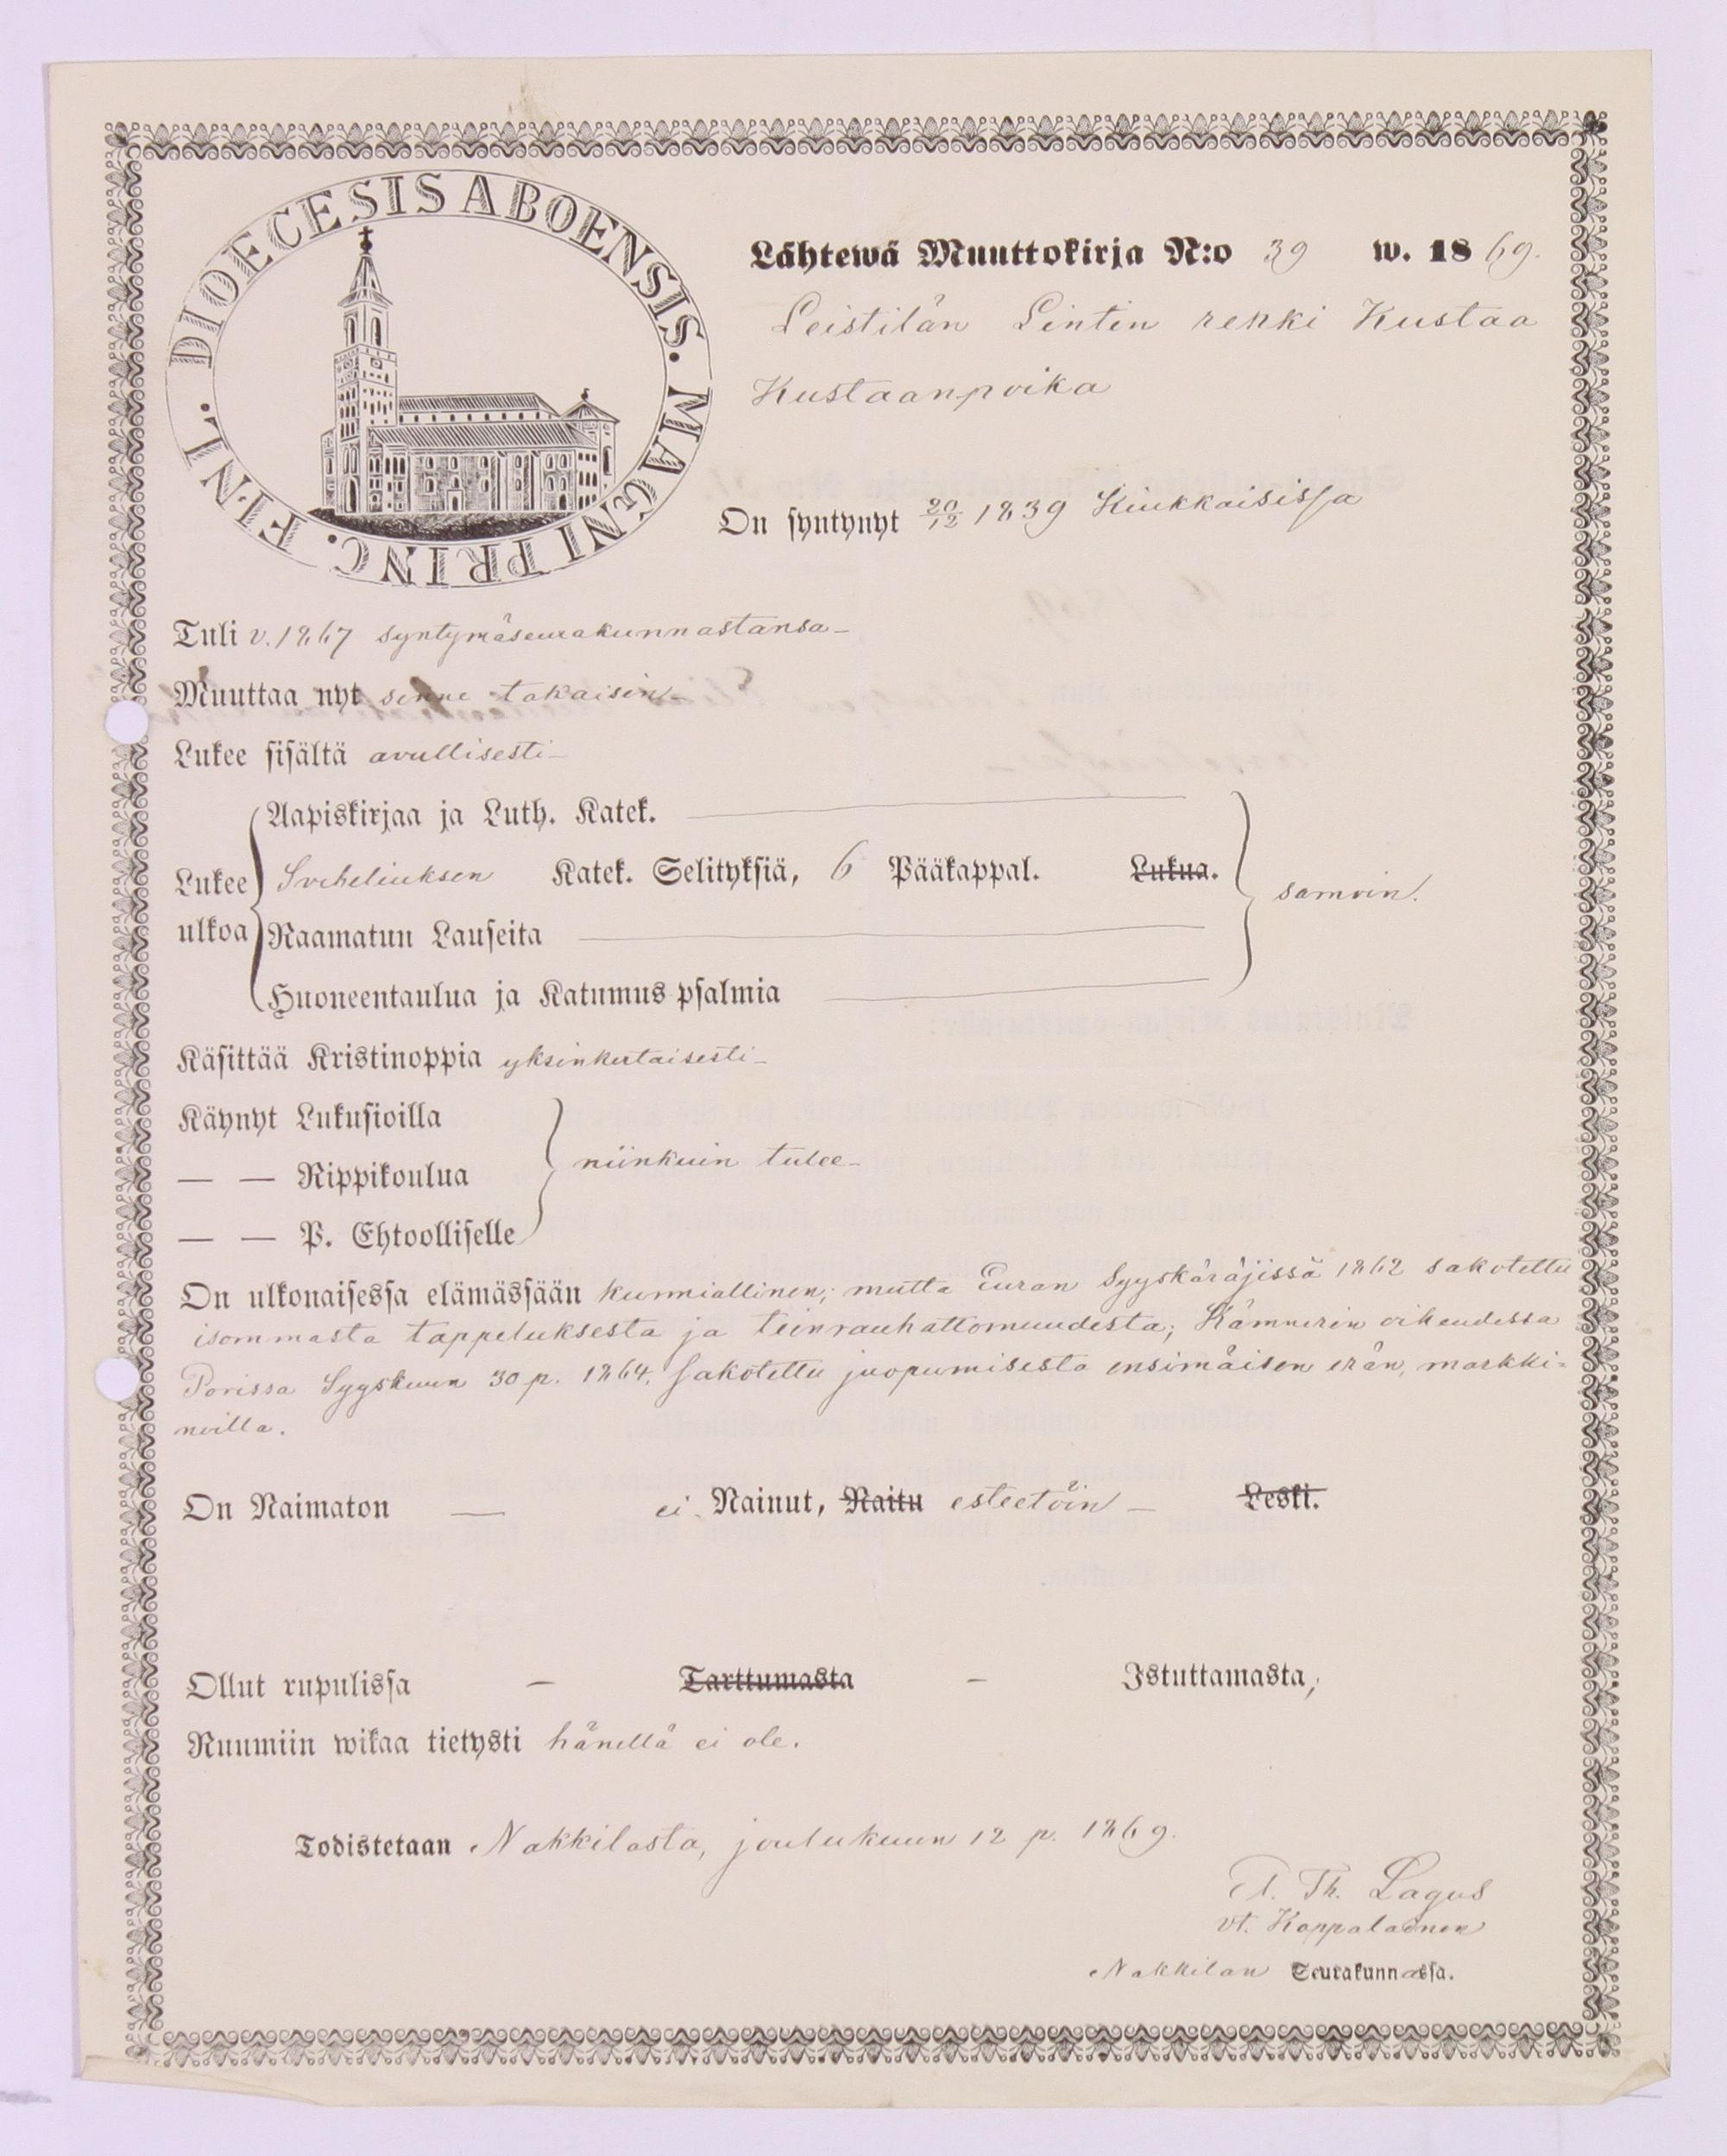 DIOECESIS ABOENSIS. MAGNI PRINC. FINL.
Lähtewä Muuttokirja N:o 39 w. 1869.
Leistilän Lintin renki Kustaa
Kustaanpoika
On syntynyt 20/12 1839 Kiukkaisissa
Tuli v. 1867 syntymäseurakunnastansa-
Muuttaa nyt sinne takaisin-
Lukee sisältä avullisesti-
Aapiskirjaa ja Luth. Katek.
Lukee Svebeliuksen Katek. Selityksiä, 6 Pääkappal. Lukua. samoin.
ulkoa Raamatun Lauseita
Huoneentaulua ja Katumus psalmia
Käsittää Kristinoppia yksinkertaisesti-
Käynyt Lukusioilla
— — Rippikoulua niinkuin tulee-
— — P. Ehtoolliselle
On ulkonaisessa elämässään kunniallinen; mutta Euran Syyskäräjissä 1862 sakotettu
isommasta tappeluksesta ja teinrauhattomuudesta; Kämnerin oikeudessa
Porissa Syyskuun 30 p. 1864. sakotettu juopumisesta ensimäisen erän, markki=
noilla.
On Naimaton — ei Nainut, Naitu esteetöin — Leski.
Ollut rupulissa – Tarttumasta – Istuttamasta,
Ruumiin wikaa tietysti hänellä ei ole.
Todistetaan Nakkilasta, joulukuun 12 p. 1869.
Th. Lagus
vt. Kappalainen
Nakkilan Seurakunnassa.